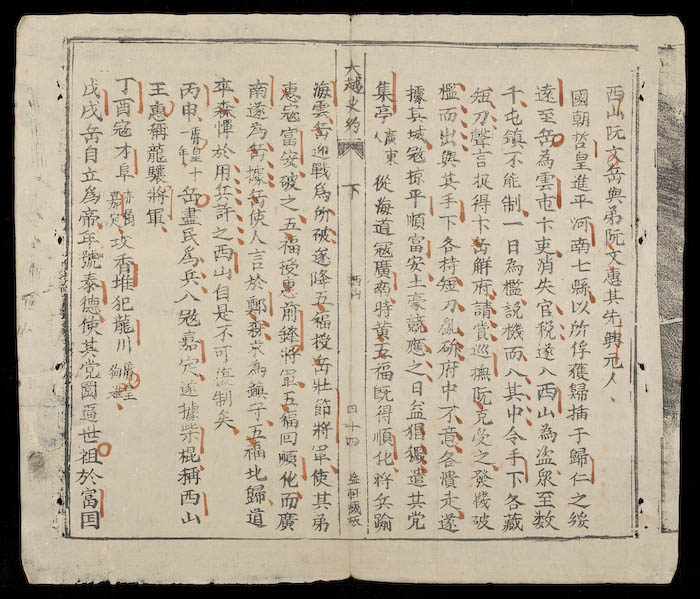 西山阮文岳與弟阮文惠其先興元人
國朝哲皇進平河南七縣以所俘獲歸插于歸仁之綏
遠至岳為雲屯卞吏消失官稅遂入西山為盜眾至数
千屯鎮不能制一日為檻設機而入其中令手下各藏
短刀聲言捉得卞岳解府請賞巡撫阮克受之發機破
檻而出與其手下各持短刀亂斫府中不意各潰走遂
據其城寇掠平順富安土豪競應之日益猖獗遣其党
集亭人廣東從海道寇廣南時黄五福既得順化將兵踰
大越史約 下 西山 四十四 益軒藏板
海雲岳迎戰為所破遂降五福授岳壮節將軍使其弟
惠寇富安破之五福授惠前鋒將軍五福囬順化而廣
南遂為岳據岳使人言於鄭森求為鎮守五福北歸道
卒森憚於用兵許之西山自是不可復制矣
丙申睿皇十年岳盡民為兵入寇嘉定遂據柴棍稱西山
王惠稱龍驤將軍
丁酉寇才阜亦屬嘉定攻香堆犯龍川
戊戌岳自立為帝年號泰德使其党圖逼世祖於富囯